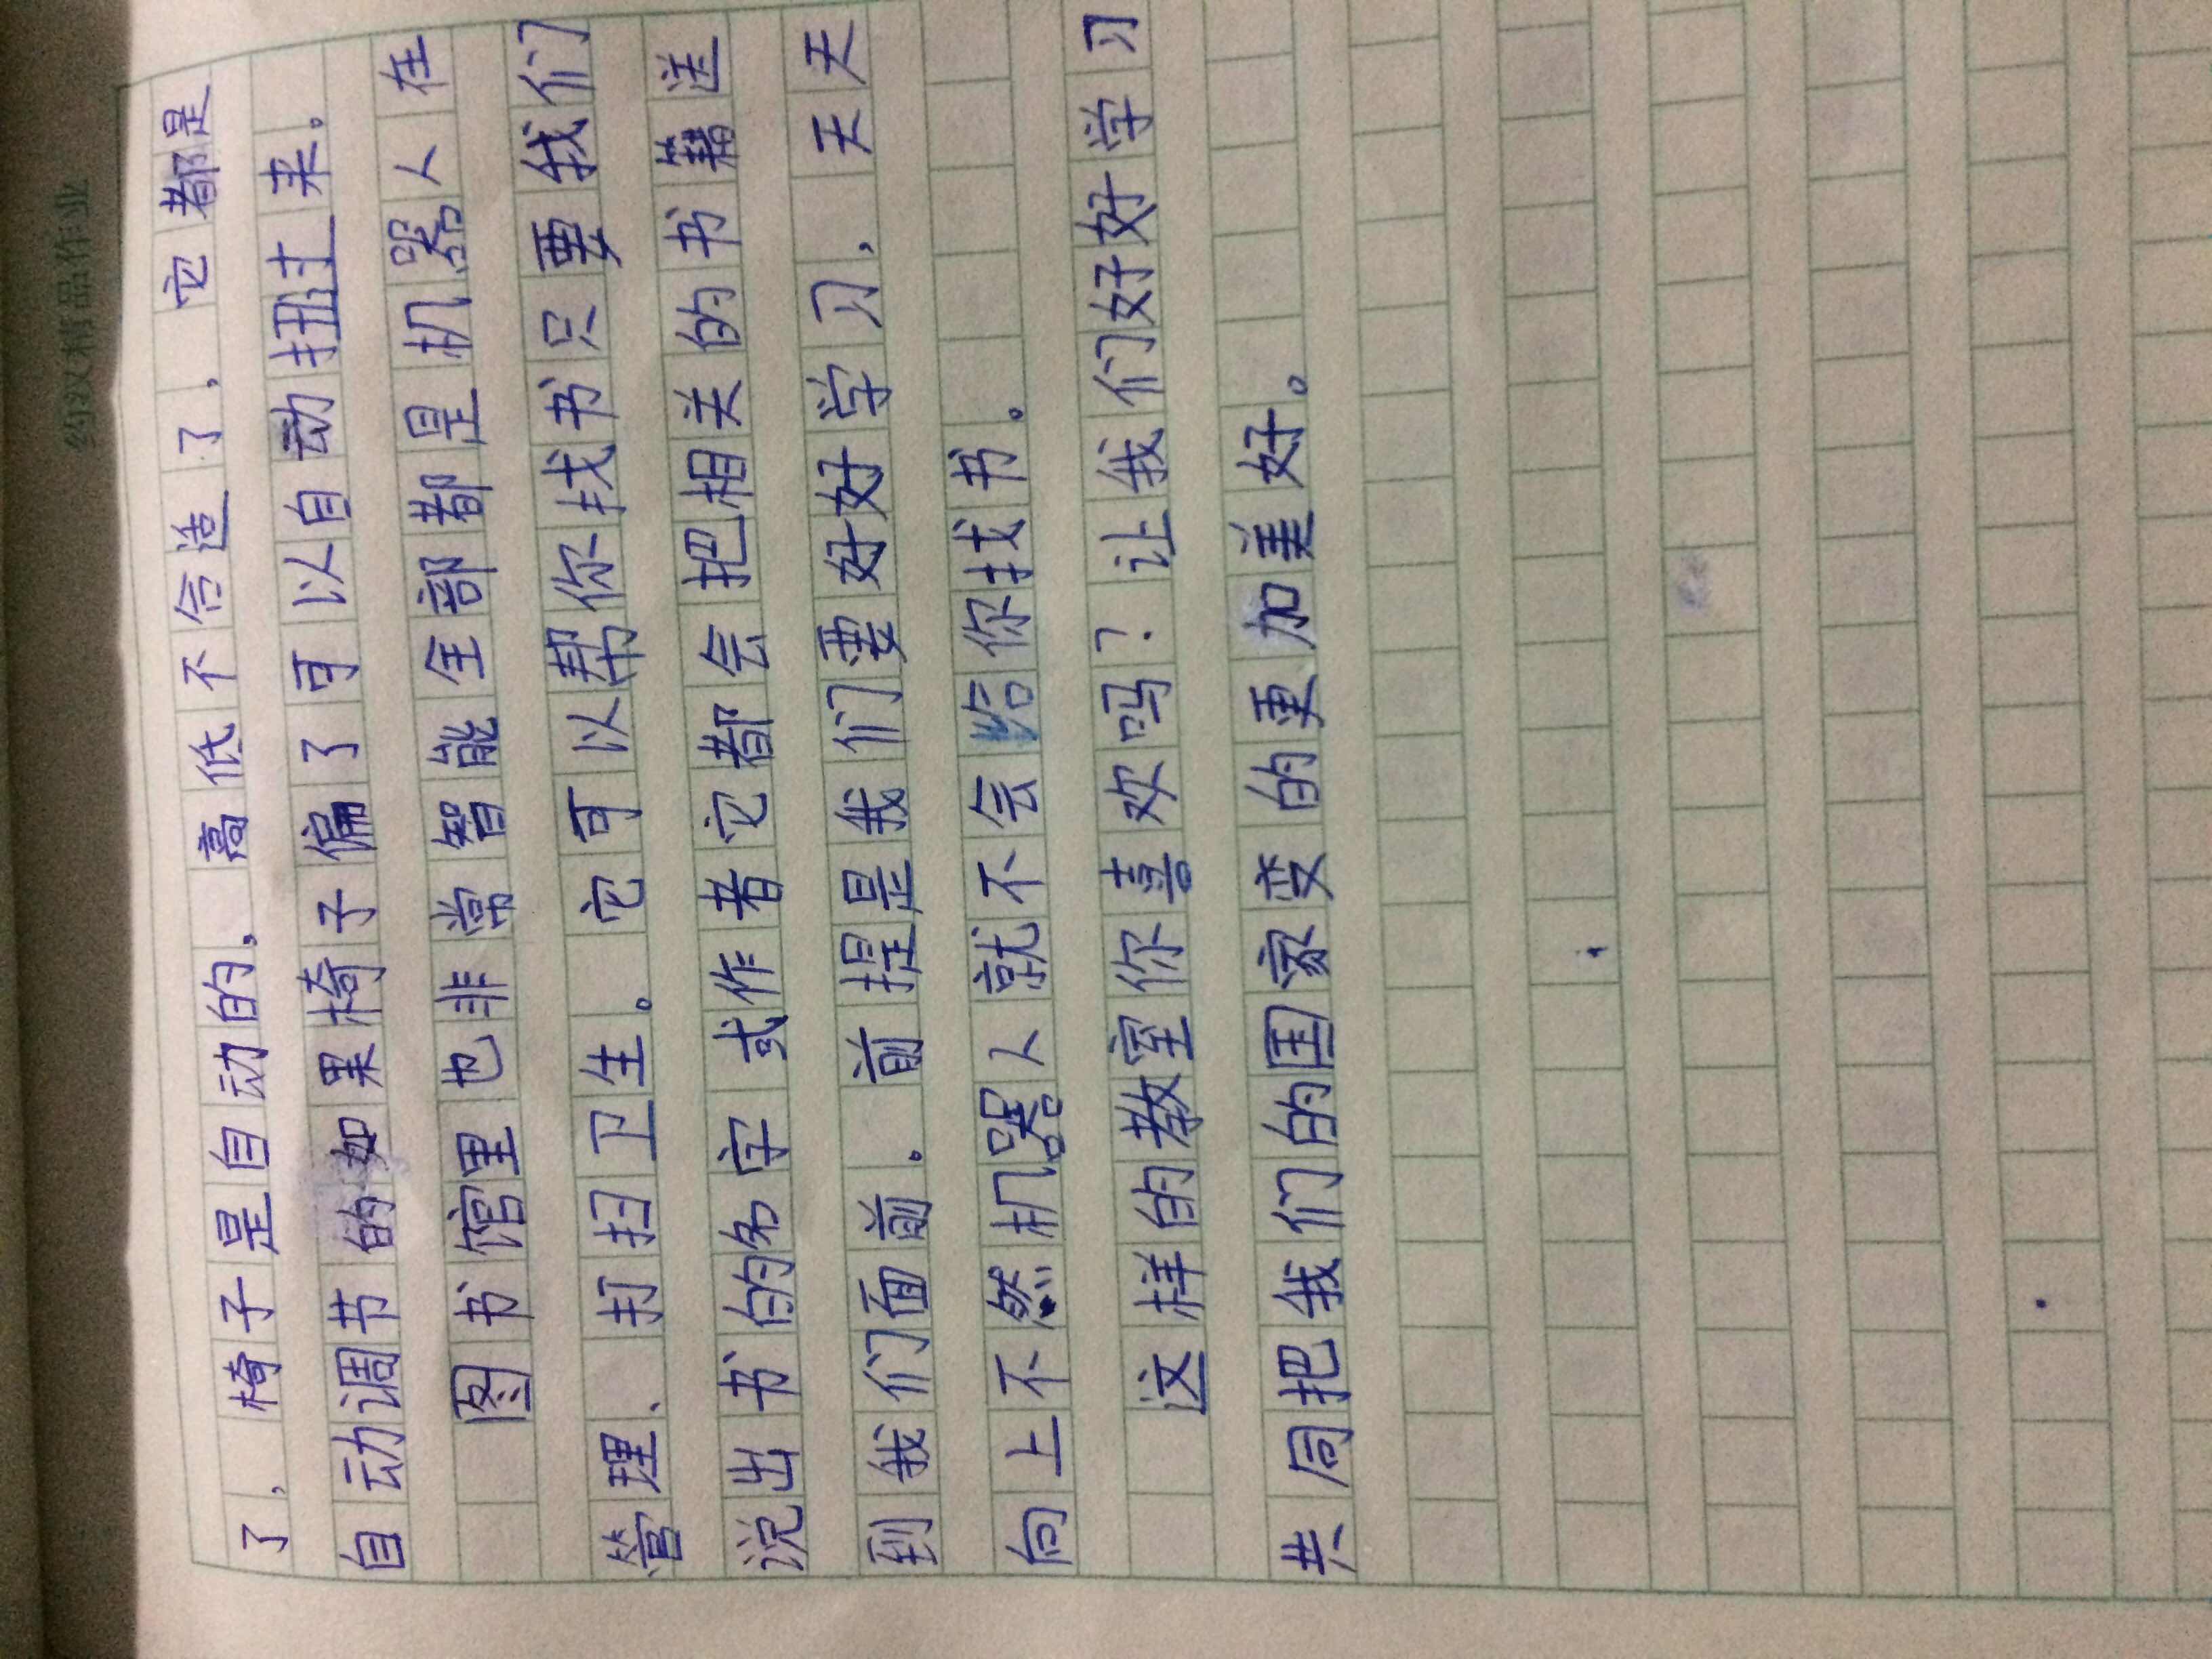 了，椅子是自动的，高低不合适了，它都是
自动调节的如果椅子偏了可以自动扭过来。
图书馆里也非常智能全部都是机器人在
管理、打扫卫生。它可以帮你找书只要我们
说出书的名字或作者它都会把相关的书籍送
到我们面前。前提是我们要好好学习，天天
向上不然机器人就不会给你找书。
这样的教室你喜欢吗？让我们好好学习
共同把我们的国家变的更加美好。